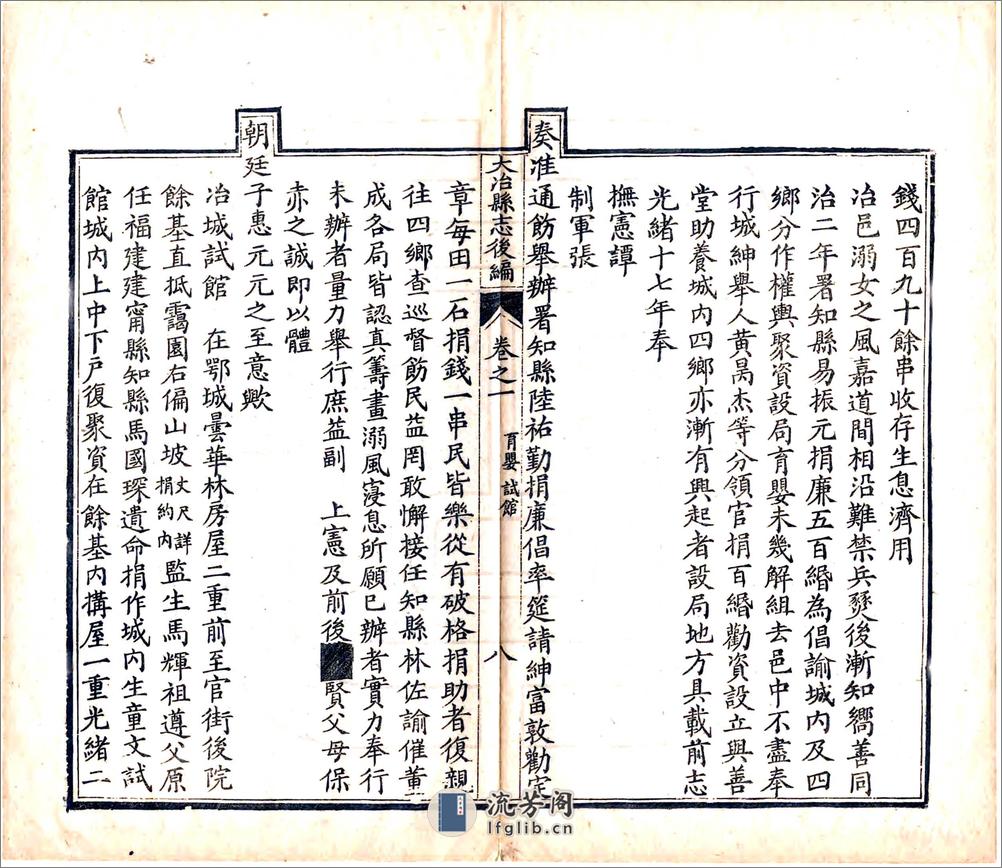 錢四百九十餘串收存生息濟用
冶邑溺女之風嘉道間相沿難禁兵燹後漸知嚮善同
治二年署知縣易振元捐廉五百緡為倡諭城內及四
鄉分作權輿聚資設局育嬰未幾解組去邑中不盡奉
行城紳舉人黃昺杰等分領官捐百緡勸資設立興善
堂助養城內四鄉亦漸有興起者設局地方具載前志
光緒十七年奉
撫憲譚
制軍張
奏准通飭舉辦署知縣陸祐勤捐廉倡率筵請紳富敦勸定
大冶縣志後編 卷之一 育嬰 試館 八
章每田一石捐錢一串民皆樂從有破格捐助者復親
往四鄉查巡督飭民益罔敢懈接任知縣林佐諭催董
成各局皆認真籌畫溺風寖息所願已辦者實力奉行
未辦者量力舉行庶益副 上憲及前後賢父母保
赤之誠即以體
朝廷子惠元元之至意歟
冶城試館 在鄂城曇華林房屋二重前至官街後院
餘基直抵靄園右偏山坡丈尺詳捐約內監生馬輝祖遵父原
任福建建甯縣知縣馬國琛遺命捐作城內生童文試
館城內上中下戶復聚資在餘基內搆屋一重光緒二
流芳阁
lfglib.cn